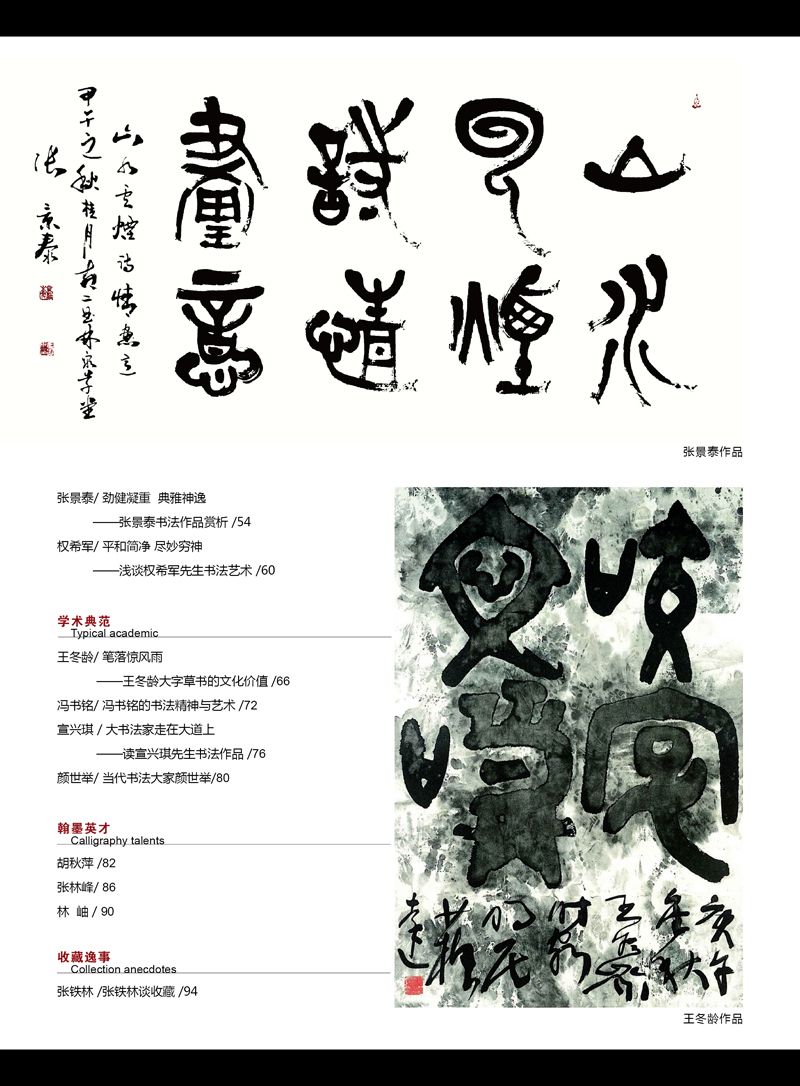 山水
雲煙
詩情
畫意
山水雲煙詩情畫意
甲午之秋桂月
张景泰
张景泰作品
张景泰/ 劲健凝重 典雅神逸
——张景泰书法作品赏析 /54
权希军/ 平和简净 尽妙穷神
——浅谈权希军先生书法艺术 /60
学术典范
Typical academic
王冬龄/ 笔落惊风雨
——王冬龄大字草书的文化价值 /66
冯书铭/ 冯书铭的书法精神与艺术 /72
宣兴琪 / 大书法家走在大道上
——读宣兴琪先生书法作品 /76
颜世举/ 当代书法大家颜世举/80
翰墨英才
Calligraphy talents
胡秋萍 /82
张林峰/ 86
林 岫 / 90
收藏逸事
Collection anecdotes
张铁林 /张铁林谈收藏 /94
王冬龄作品